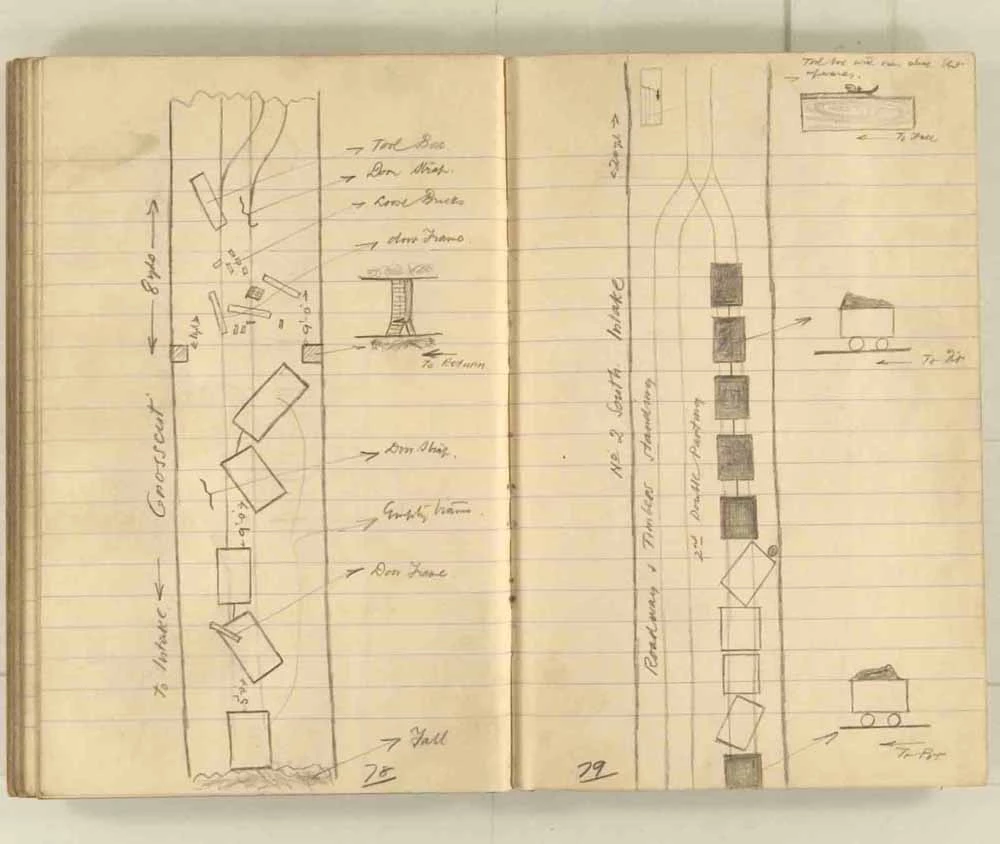 Tool Box
Door Strap.
Loose Bricks
door Frame
8 yds
4 yds
6'.0"
To Return
Crosscut
Door Strap.
6'.0"
Empty trams.
Door Frame
To Intake
5'.0"
Fall
78
Tool box with
To Fall
20 yds
No 2 South Intake
Roadway & Timbers standing
2nd Double Parting
To Pit
To Pit
79